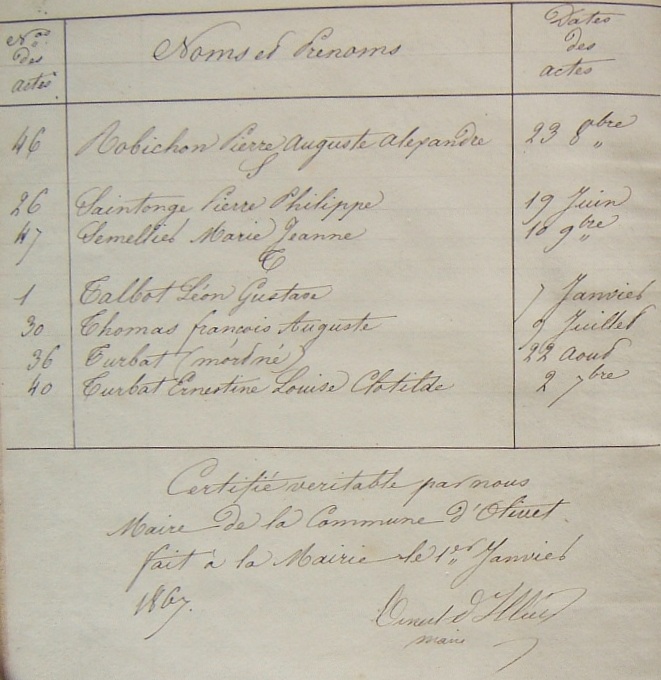 Nos des actes Noms et Prenoms Dates des actes
46 Robichon Pierre Auguste Alexandre 23 8bre "
S
26 Saintonge Pierre Philippe 19 Juin
47 Semellier Marie Jeanne 10 9bre "
T
1 Talbot Léon Gustave 7 Janvier
30 Thomas françois Auguste 9 Juillet
36 Turbat (mort né) 22 Aout
40 Turbat Ernestine Louise Clotilde 2 7bre
Certifié veritable par nous
Maire de la Commune d'Olivet
fait à la Mairie le 1er Janvier
1867.
d'Illiers
maire